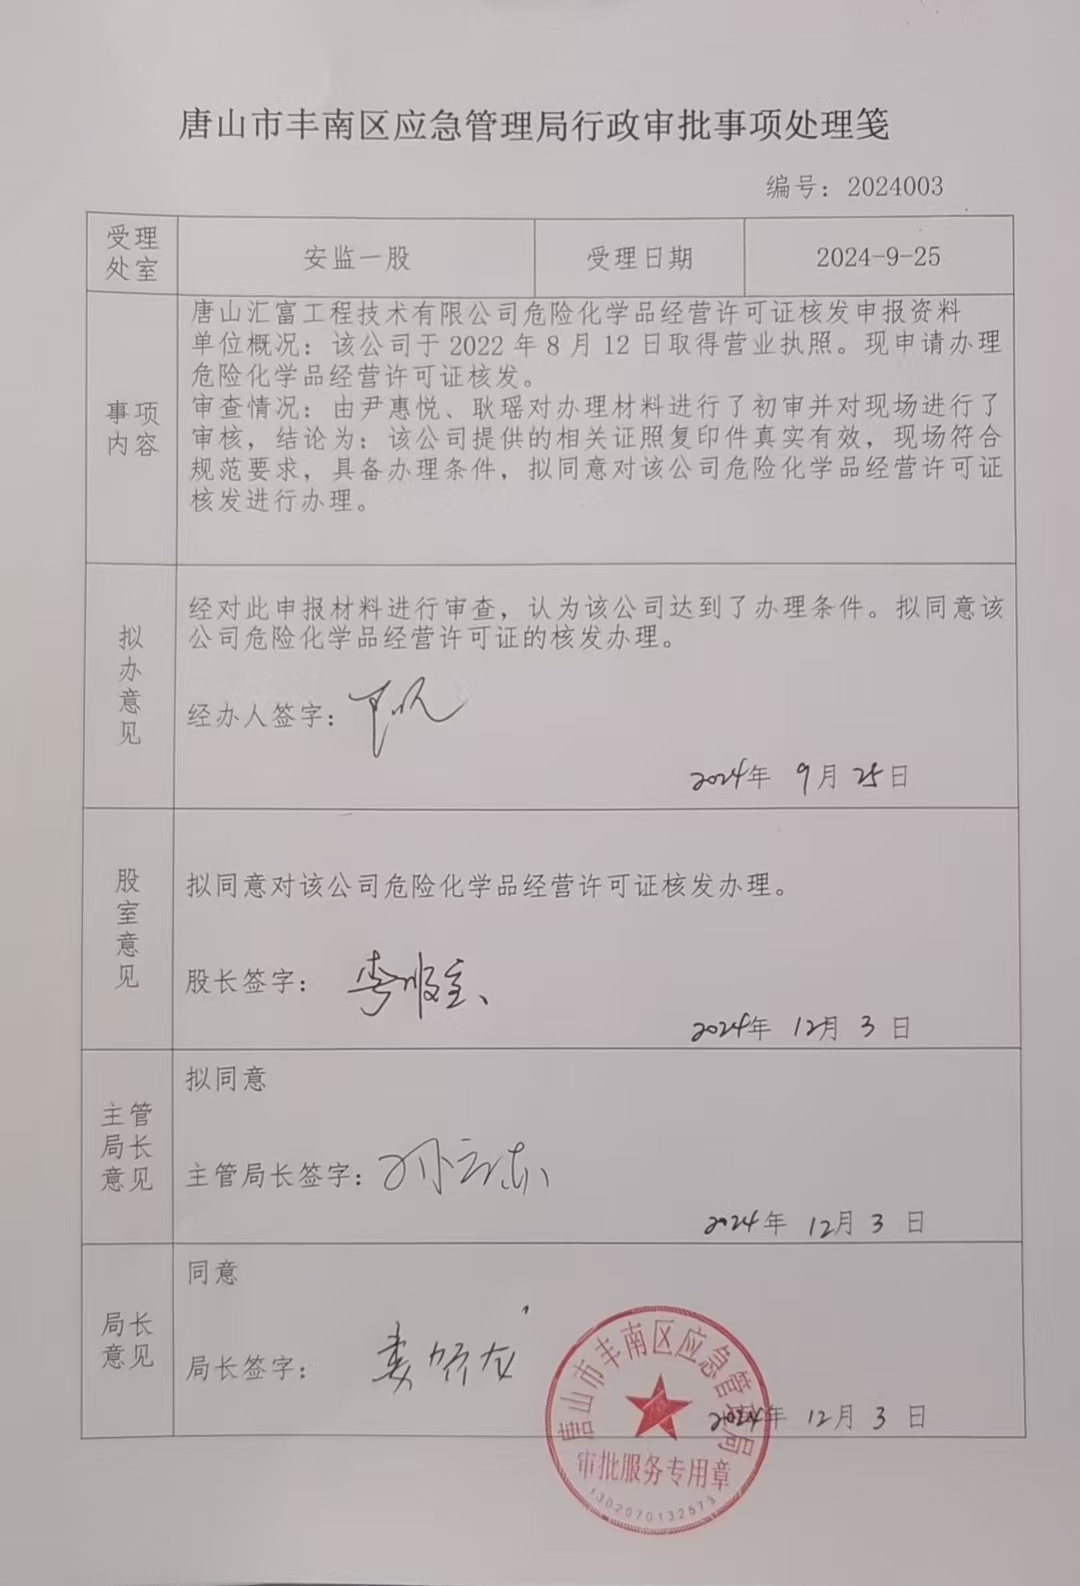 唐山市丰南区应急管理局行政审批事项处理笺
编号：2024003
受理
处室
安监一股
受理日期
2024-9-25
事项
内容
唐山汇富工程技术有限公司危险化学品经营许可证核发申报资料
单位概况：该公司于 2022 年 8 月 12 日取得营业执照。现申请办理
危险化学品经营许可证核发。
审查情况：由尹惠悦、耿瑶对办理材料进行了初审并对现场进行了
审核，结论为：该公司提供的相关证照复印件真实有效，现场符合
规范要求，具备办理条件，拟同意对该公司危险化学品经营许可证
核发进行办理。
拟
办
意
见
经对此申报材料进行审查，认为该公司达到了办理条件。拟同意该
公司危险化学品经营许可证的核发办理。
经办人签字：
2024年 9月 25日
股
室
意
见
拟同意对该公司危险化学品经营许可证核发办理。
股长签字：
2024年 12月 3 日
主管
局长
意见
拟同意
主管局长签字：
2024年 12月 3 日
局长
意见
同意
局长签字：
2024年 12月 3 日
唐山市丰南区应急管理局
审批服务专用章
1302070132573